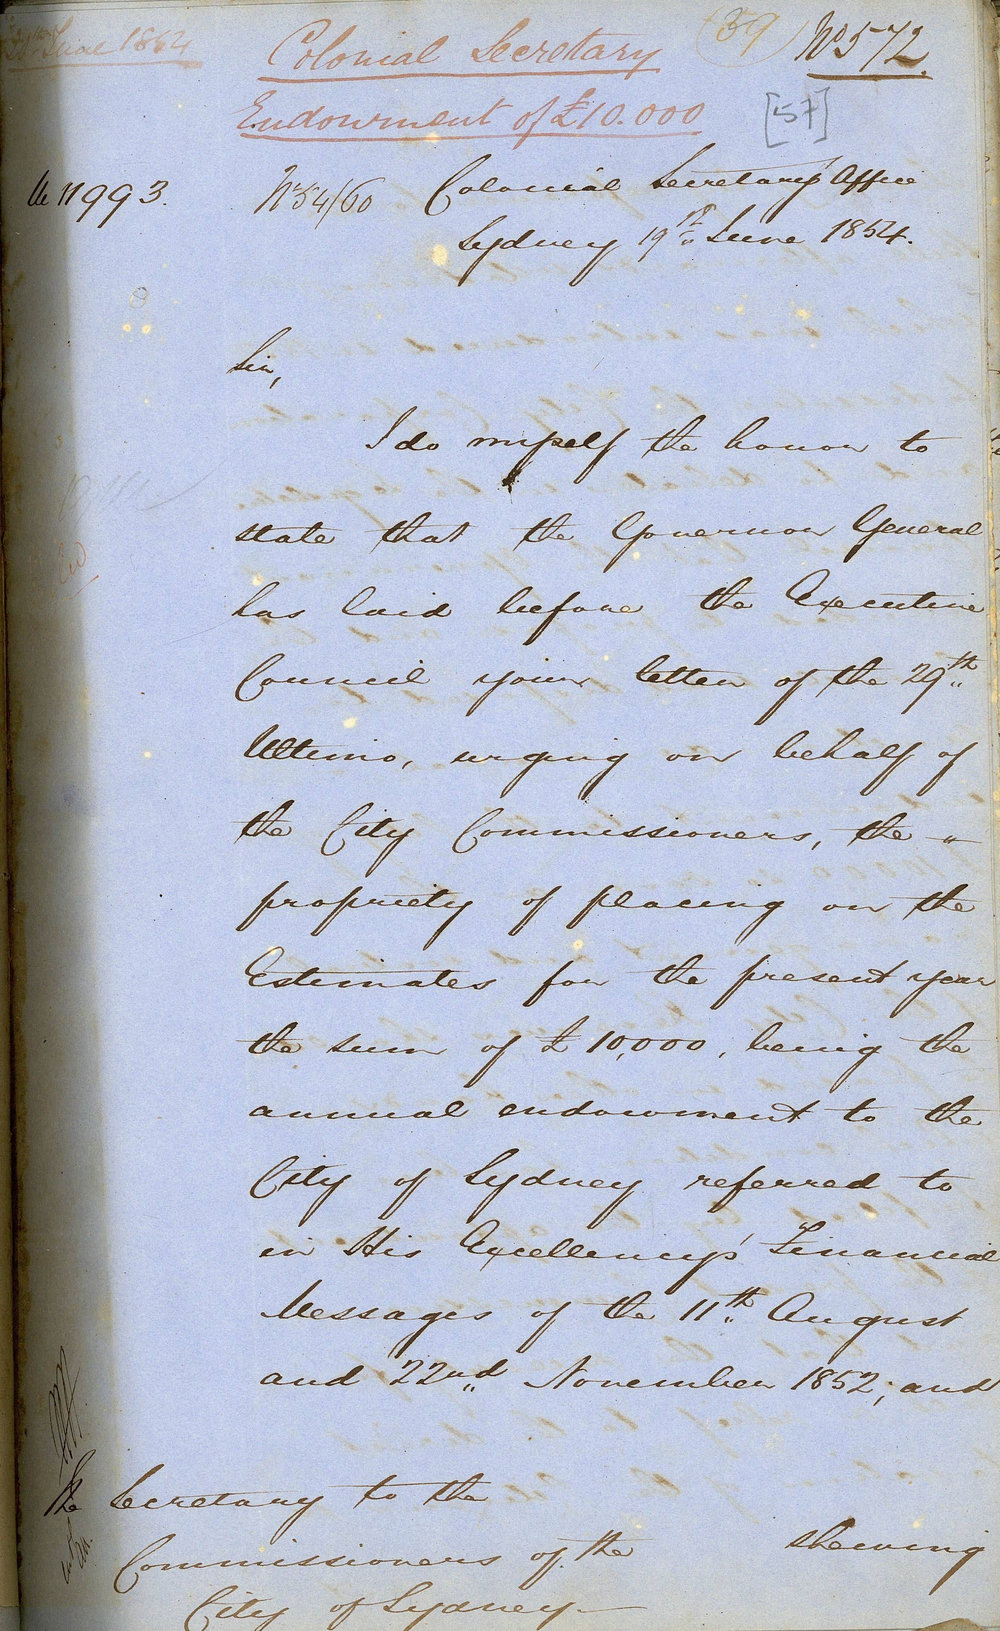 1854
Colonial Secretary
(59)
No 572.
Endowment of £10.000
[57]
11993.
No 54/60
Colonial Secretary's Office
Sydney 19th June 1854.
Sir,
I do myself the honor to
state that the Governor General
has laid before the Executive
Council your letter of the 29th
Ultimo, urging on behalf of
the City Commissioners, the "
propriety of placing on the
Estimates for the present year
the sum of £10,000, being the
annual endowment to the
City of Sydney referred to
in His Excellency's Financial
Messages of the 11th August
and 22nd November 1852, and
The Secretary to the
Commissioners of the
City of Sydney —
shewing